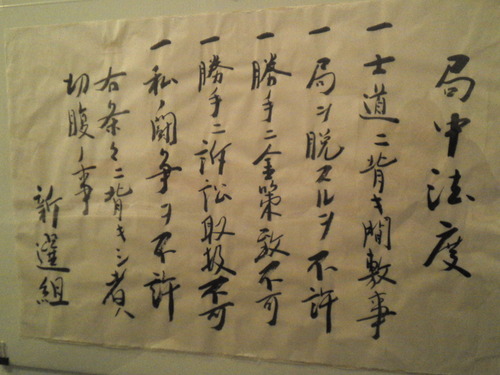 局中法度
一士道ニ背キ間敷事
一局ヲ脱スルヲ不許
一勝手ニ金策致不可
一勝手ニ訴訟取扱不可
一私ノ闘争ヲ不許
右条々ニ背キシ者ハ
切腹ノ事
新選組